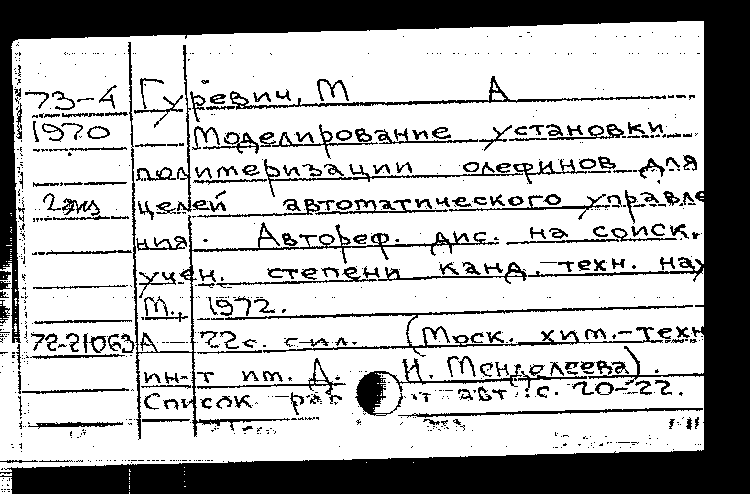 73-4 Гуревич, М А
1970 Моделирование установки
полимеризации олефинов для
2 экз целей автоматического управле
ния. Автореф. дис. на соиск.
учен. степени канд. техн. нау
М., 1972.
72-21063 А 22с. с ил. (Моск. хим.-техн
ин-т им. Д. И. Менделеева).
Список раб авт.: с. 20-22.